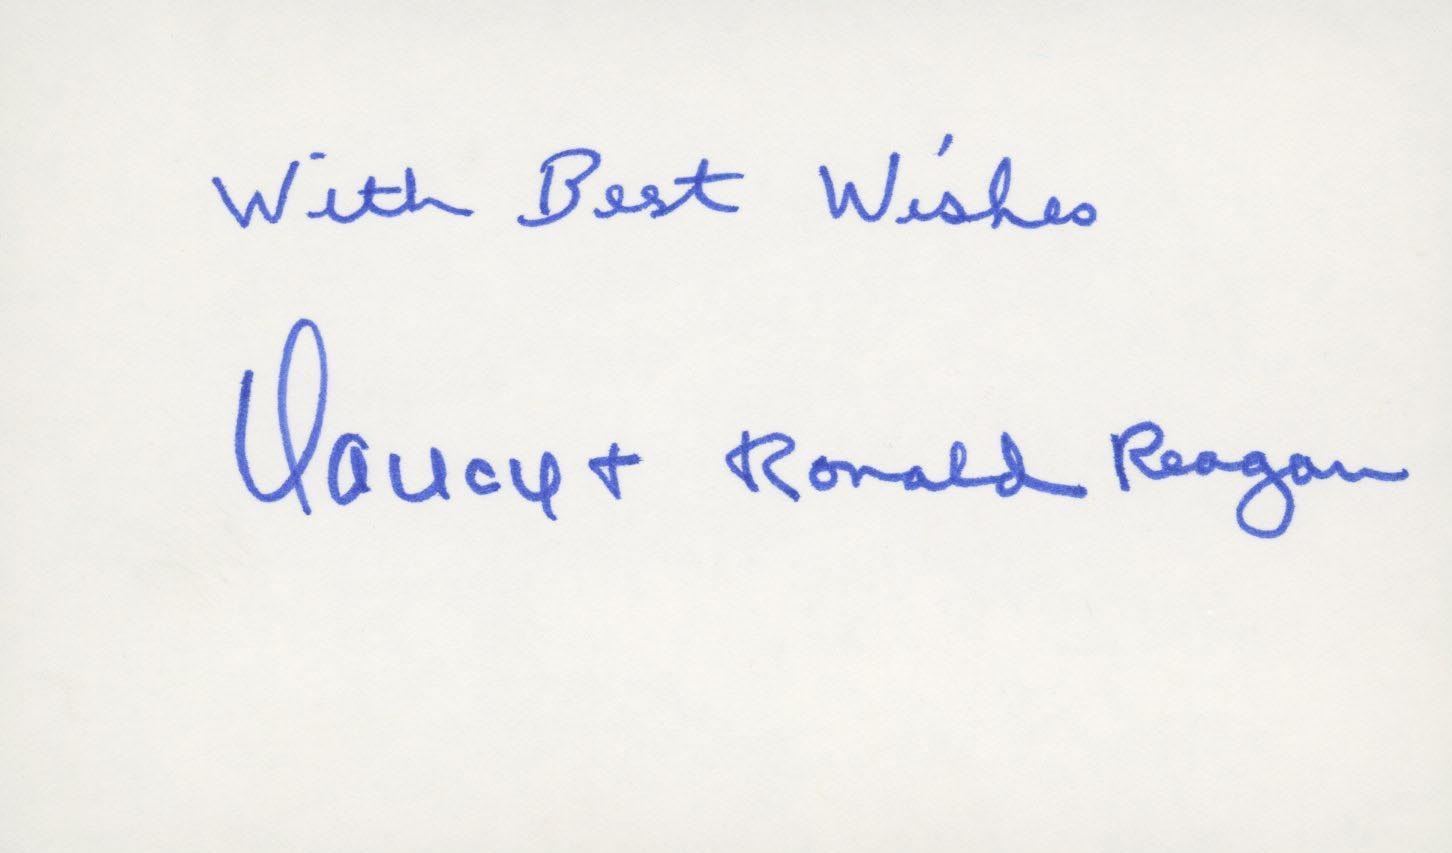 With Best Wishes
Nancy + Ronald Reagan